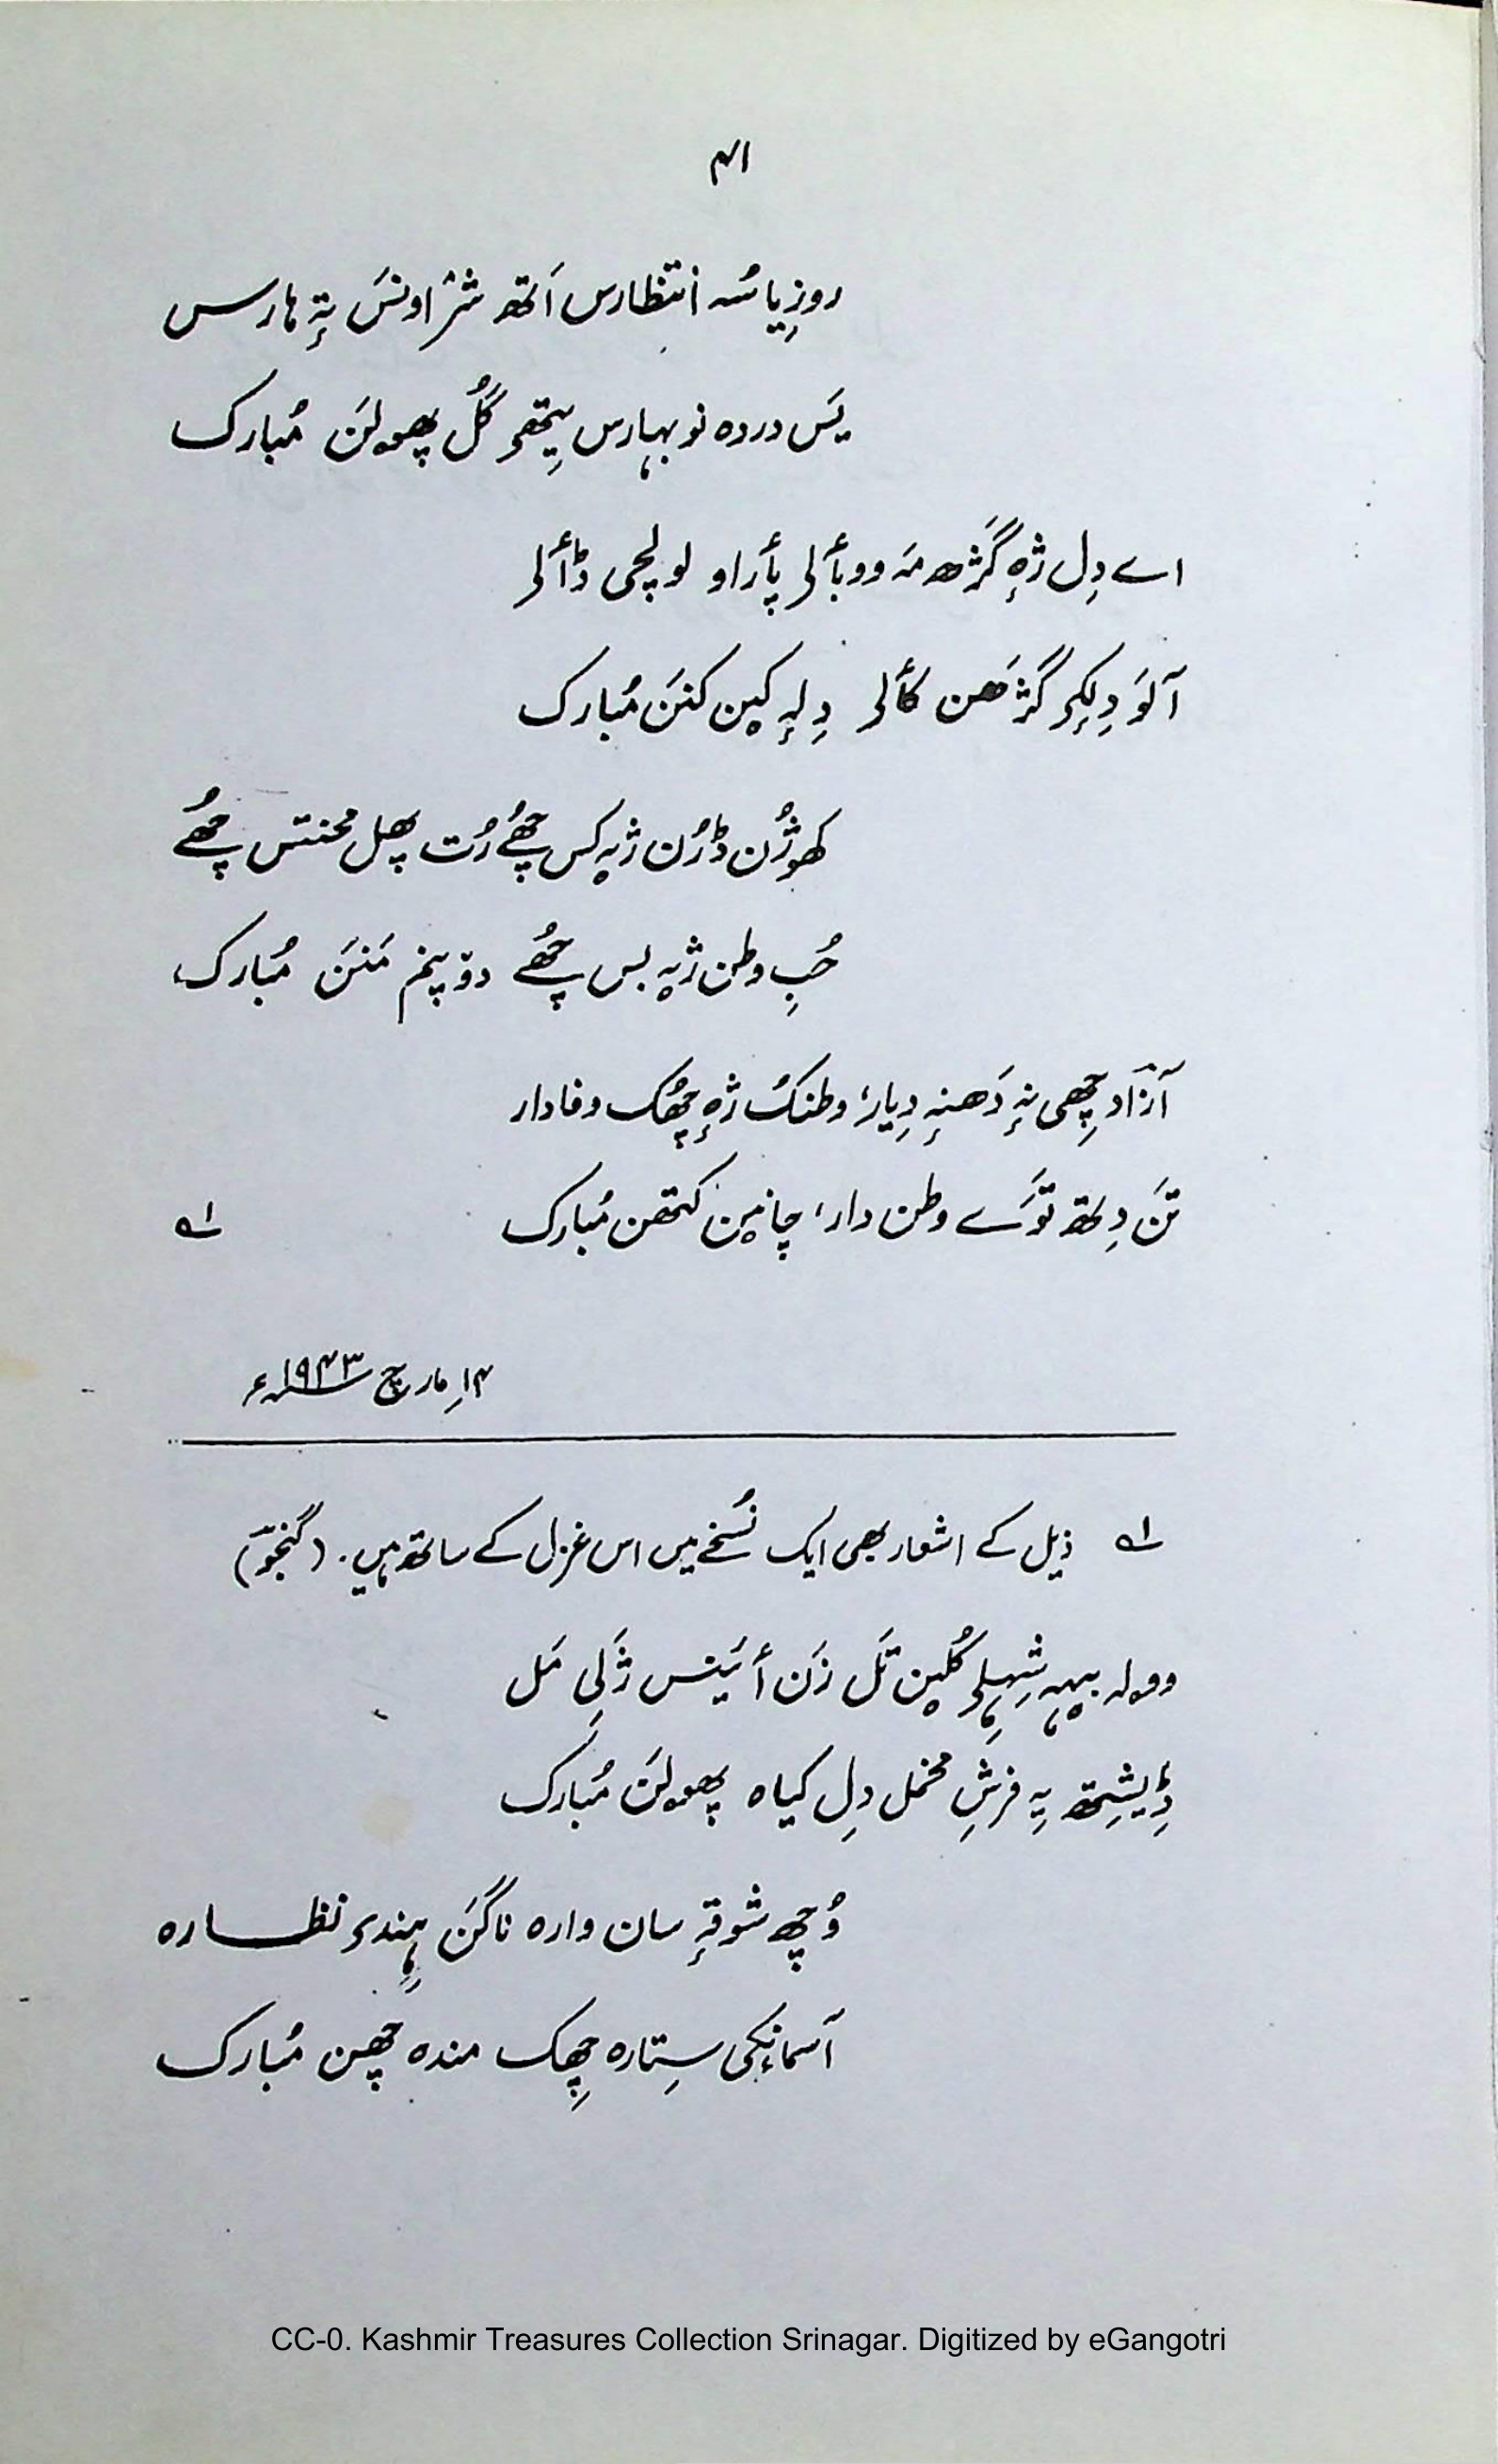 ۴۱
روزِیا سُہ اِنتظارس اَتھ شرٛاونَس تہٕ ہارس
یَس دردہ نو بہارس یِتھۍ گُل پھولَن مُبارک
اے دِل ژٕہ گَژھ مَہ ووبٲلۍ پٲراو لولچی ڈٲلۍ
آلَو دِلِکۍ گَژھَن کٲلۍ دِلہٕ کین کنَن مُبارک
کھوژُن ڈرُن ژیہ کس چھُے رُت پھل محنتس چھُے
حُبِ وطن ژیہ بس چھُے دۄپنم مَنَن مُبارک
آزاد چھِی نہٕ دَھنہٕ دِیار، وطنکُ ژٕہ چھُک وفادار
تَن دِتھ تَوَے وطن دار، چانین کتھن مُبارک ؎۱
۱۴؍ مارچ ۱۹۴۳ء
؎۱ ذیل کے اشعار بھی ایک نُسخے میں اس غزل کے ساتھ ہیں۔ (گنجوؔ)
وولہ بیہہ شِہلۍ گُلین تَل زَن أئینس ژَلِی مَل
ڈِیشِتھ یہِ فرشِ مخمل دِل کیاہ پھولَن مُبارک
وُچھ شوقہٕ سان وارہ ناگَن ہِندۍ نظارہ
آسمانٕکی سِتارہ چھِک مندہ چھن مُبارک
CC-0. Kashmir Treasures Collection Srinagar. Digitized by eGangotri